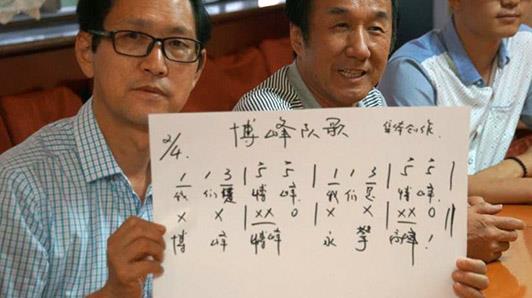 博峰队歌 集体创作.
2/4.
1 1 3 | 5 5 | 1 1 3 | 5 5 |
我们爱 博峰. 我们 博峰.
X X | XX 0 | X X | XX 0 ||
博 峰 博峰 永 攀 高峰!